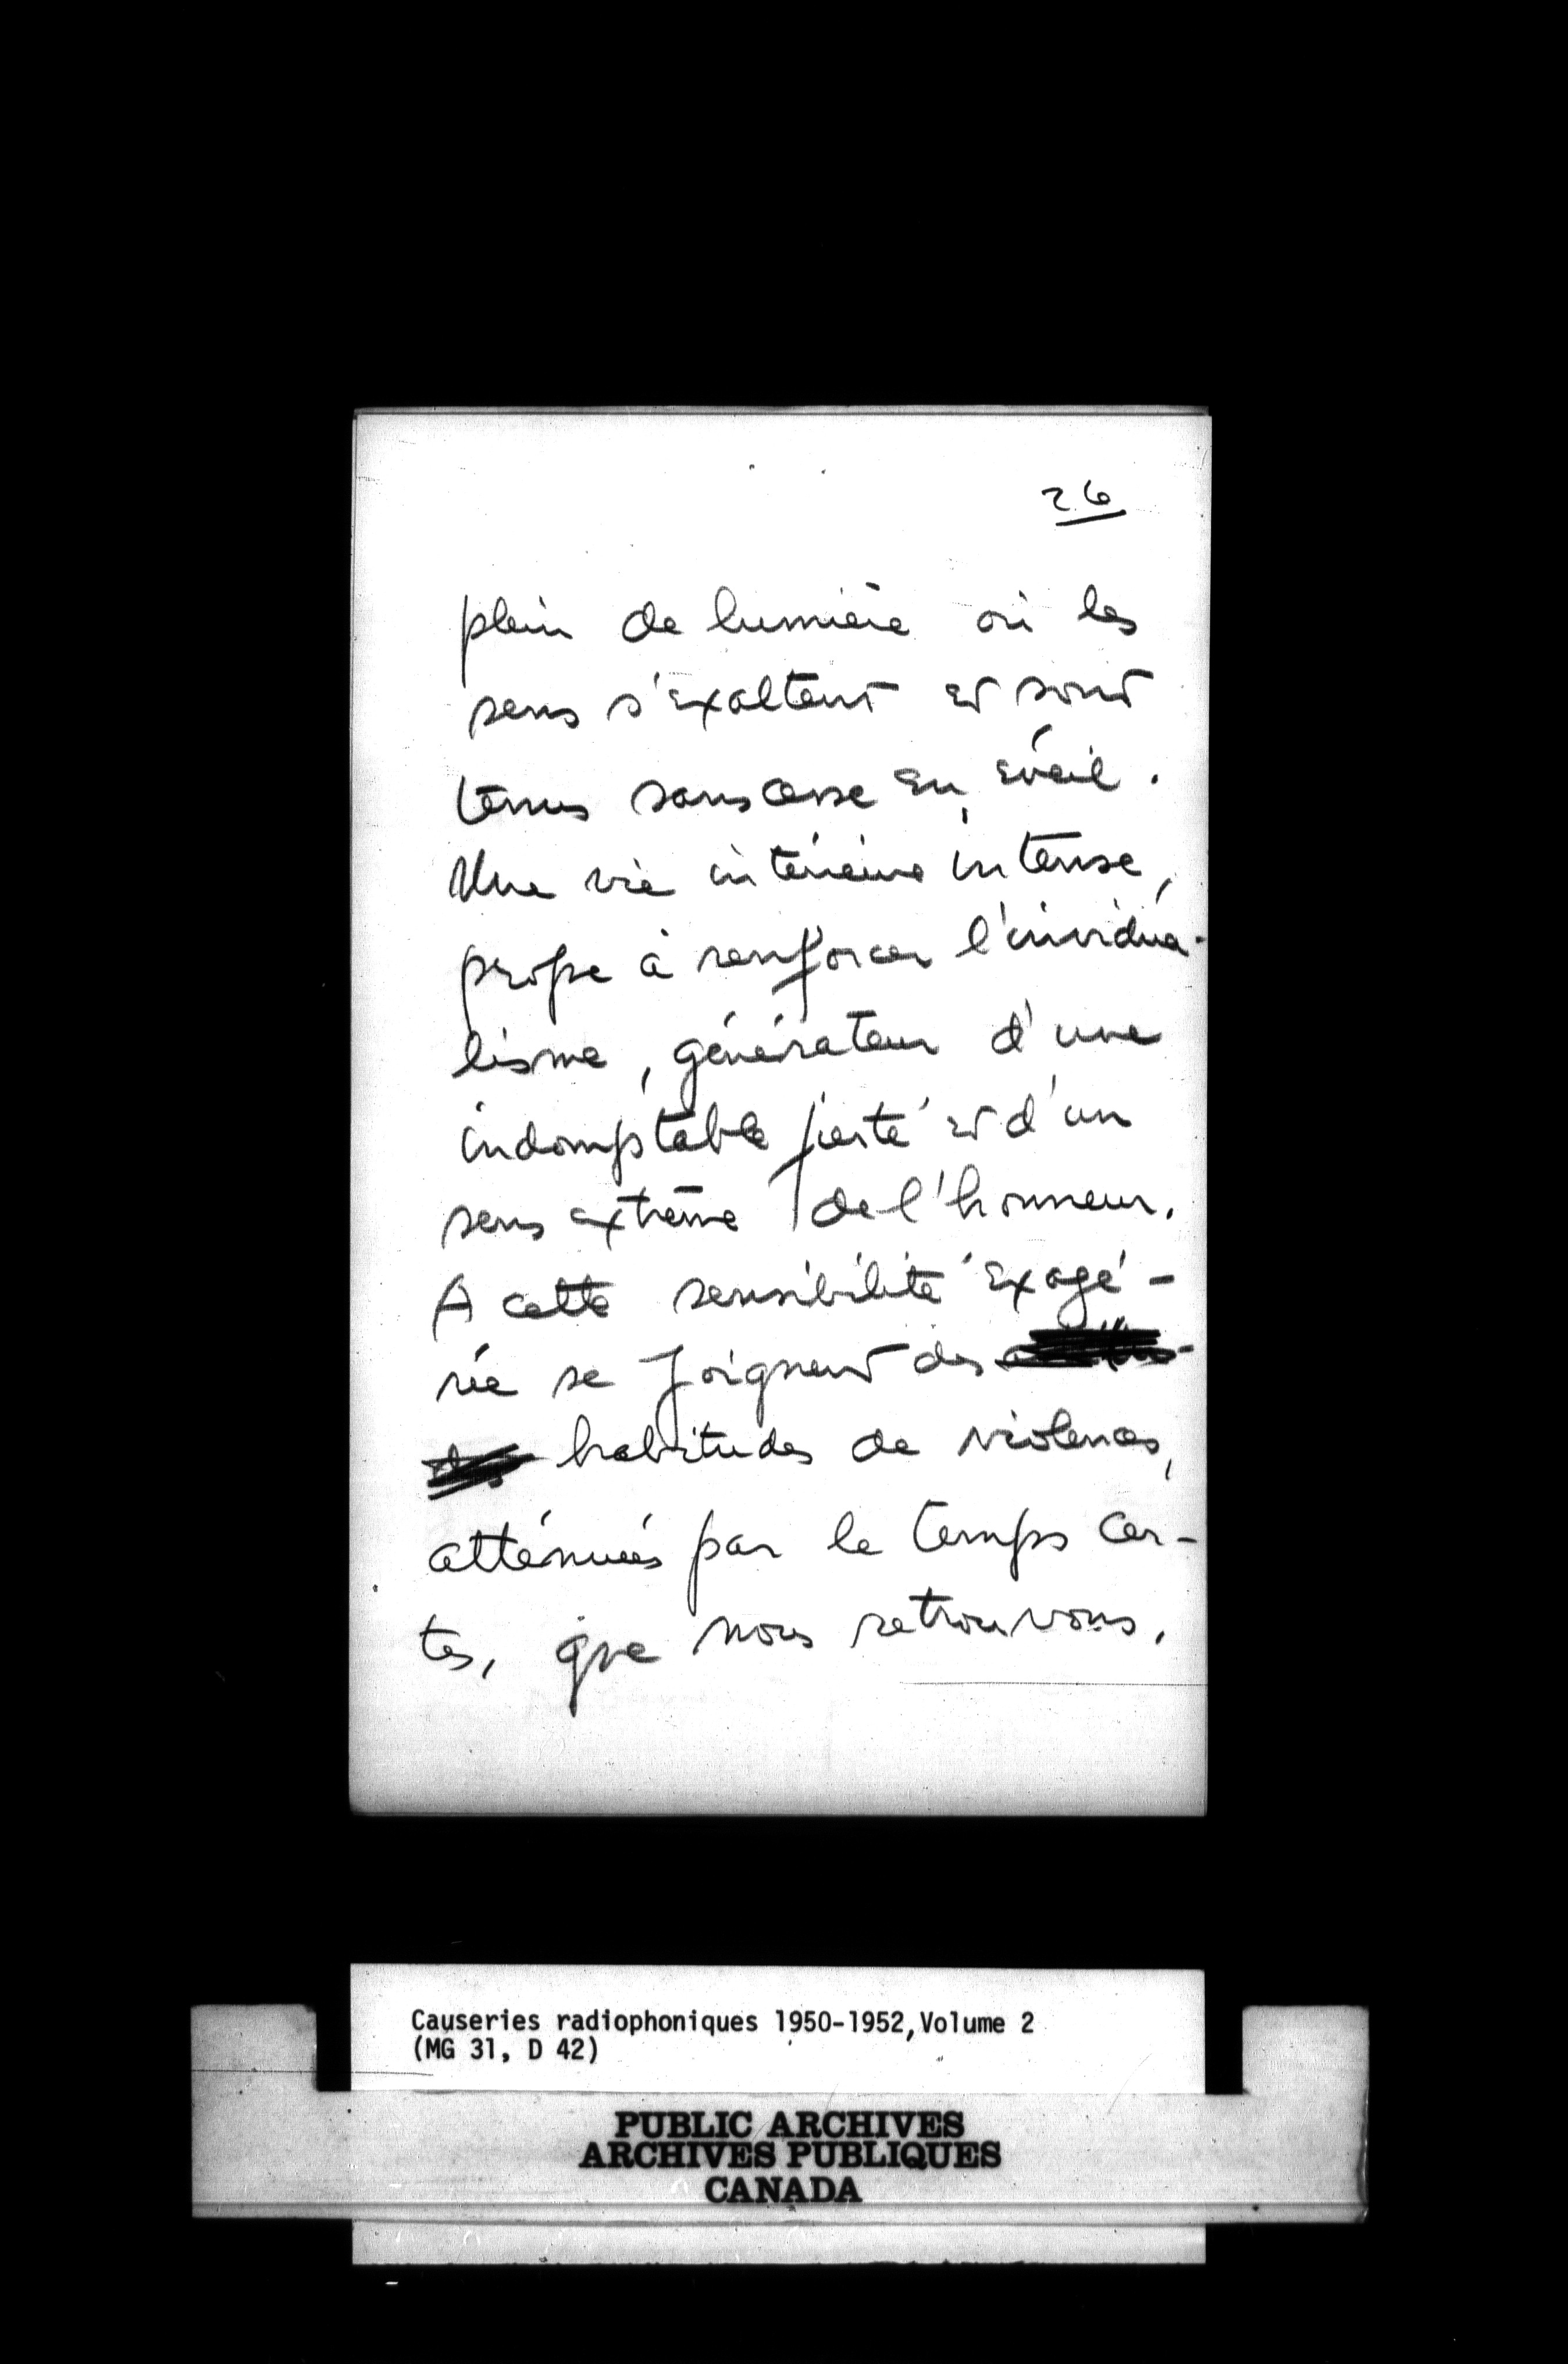 26
plein de lumière où les
sens s'exaltent et sont
tenus sans cesse en éveil.
Une vie intérieure intense,
propre à renforcer l'invidua-
lisme, générateur d'une
indomptable fierté et d'un
sens extrême de l'honneur.
A cette sensibilité exagé-
rée se joignent des
habitudes de violences,
atténuées par le temps cer-
tes, que nous retrouvons.
Causeries radiophoniques 1950-1952, Volume 2
(MG 31, D 42)
PUBLIC ARCHIVES
ARCHIVES PUBLIQUES
CANADA